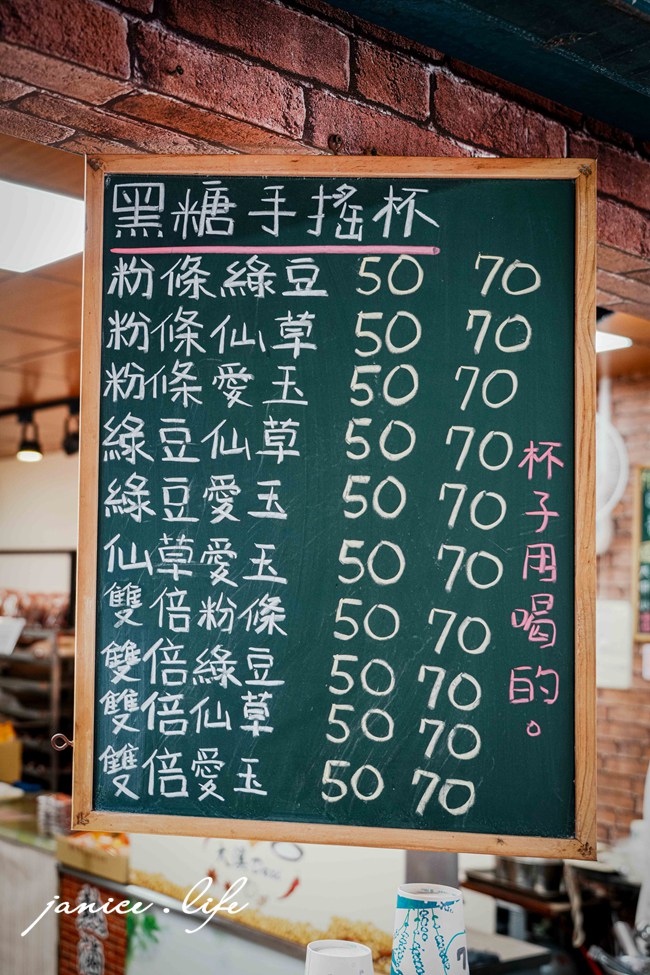 黑糖手搖杯
粉條綠豆 50 70
粉條仙草 50 70
粉條愛玉 50 70
綠豆仙草 50 70
綠豆愛玉 50 70
仙草愛玉 50 70
雙倍粉條 50 70
雙倍綠豆 50 70
雙倍仙草 50 70
雙倍愛玉 50 70
杯子用喝的。
janice.life